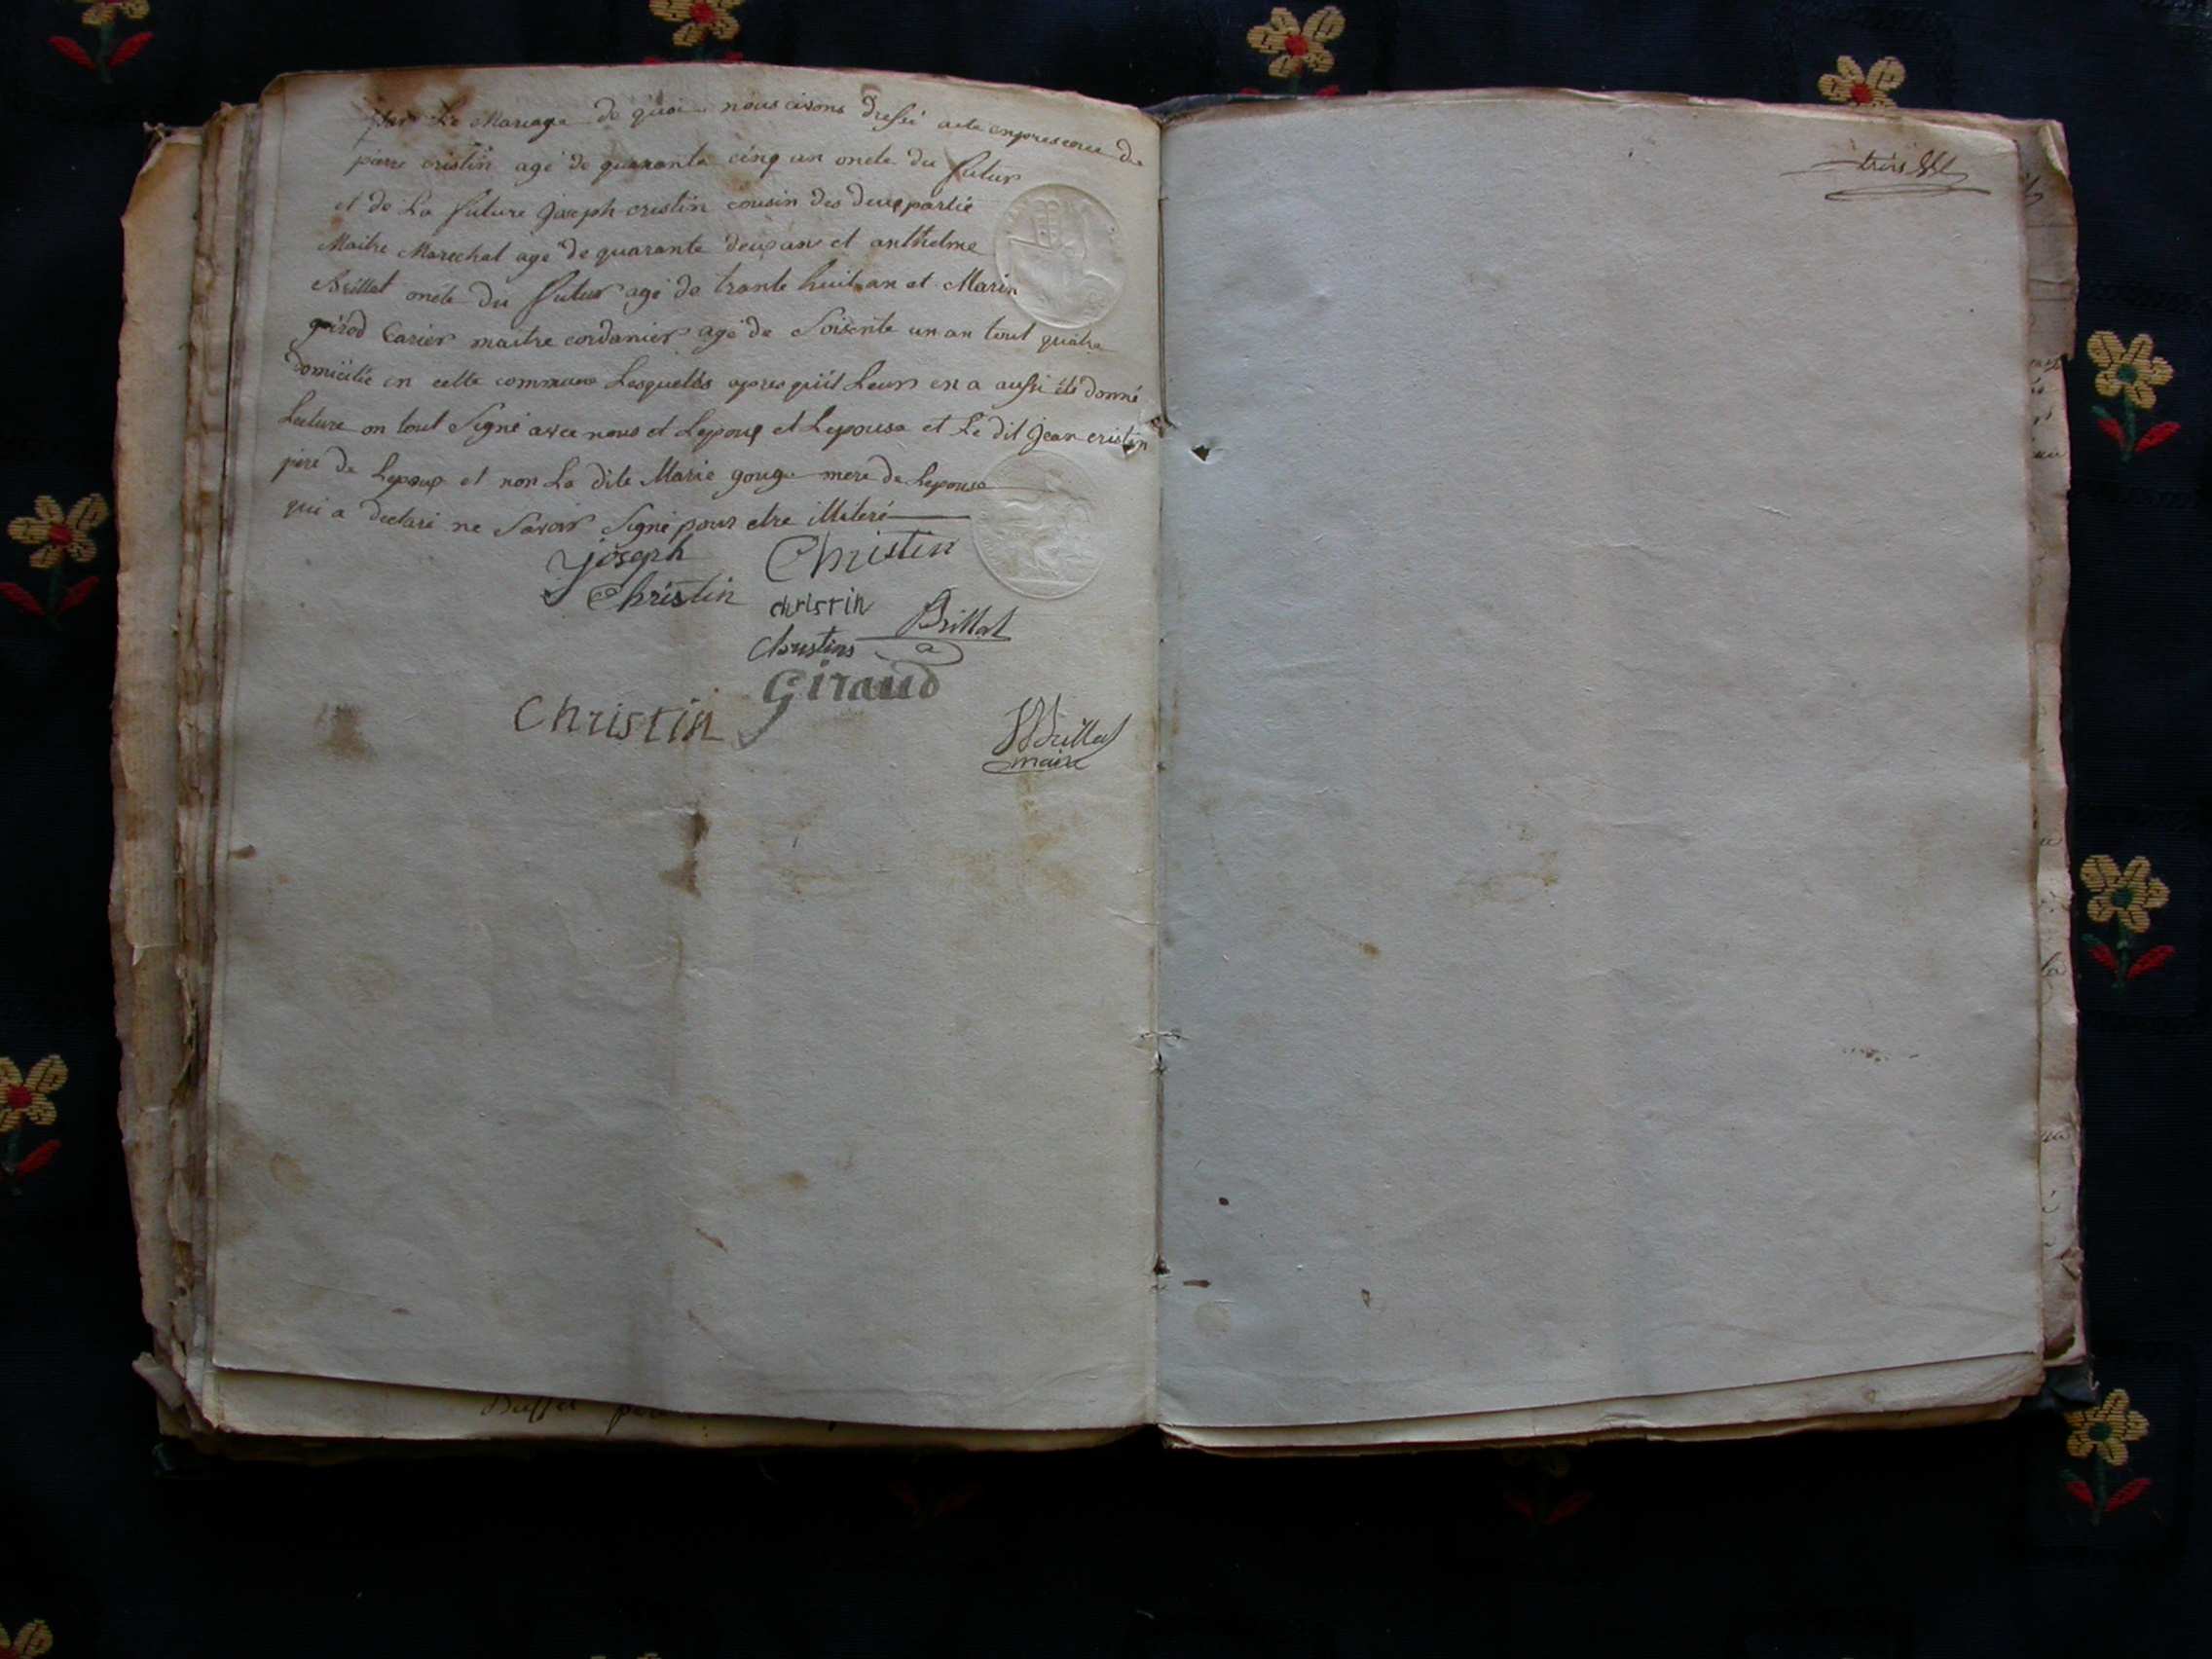 par Le Mariage de quoi nous avons dressé acte enpresence de
pierre cristin agé de quarante cinq an oncle du futur
et de La future joseph cristin cousin des deux partie
Maitre Marechal agé de quarante deux an et anthelme
Brillat oncle du futur agé de trante huit an et Marin
girod Carier maitre cordanier agé de Soisente un an tout quatre
domicilié en cette commune Lesquelles apres qu'il Leurs en a aussi été donné
Lecture on tout Signé avec nous et Lepoux et Lepouse et Le dit Jean cristin
pere de Lepoux et non La dite Marie gouge mere de Lepouse
qui a declaré ne Savoir Signé pour etre illiteré
Joseph Christin
Christin christin
Christin Brillat
Giraud
Christin
Brillat
maire
trois